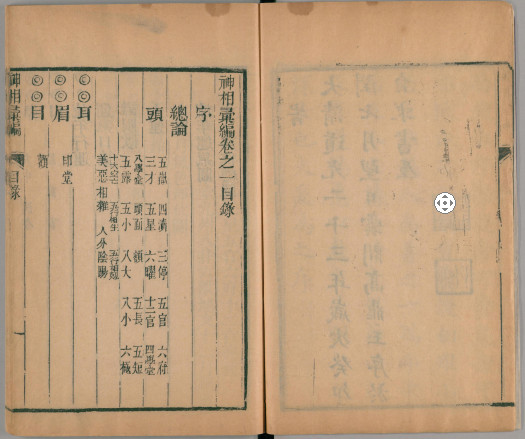 神相彙編卷之一目錄
字
總論
五嶽 四瀆 三停 五官 六府
頭 三才 五星 六曜 十二宮 四學堂
八學堂 頭面 額 五長 五短
五露 五小 八大 八小 六極
十大空亡 五行相生 五行相剋
美惡相雜 人分陰陽
◎◎耳
◎◎眉 印堂
◎◎目 顴
神相彙編 目錄 一